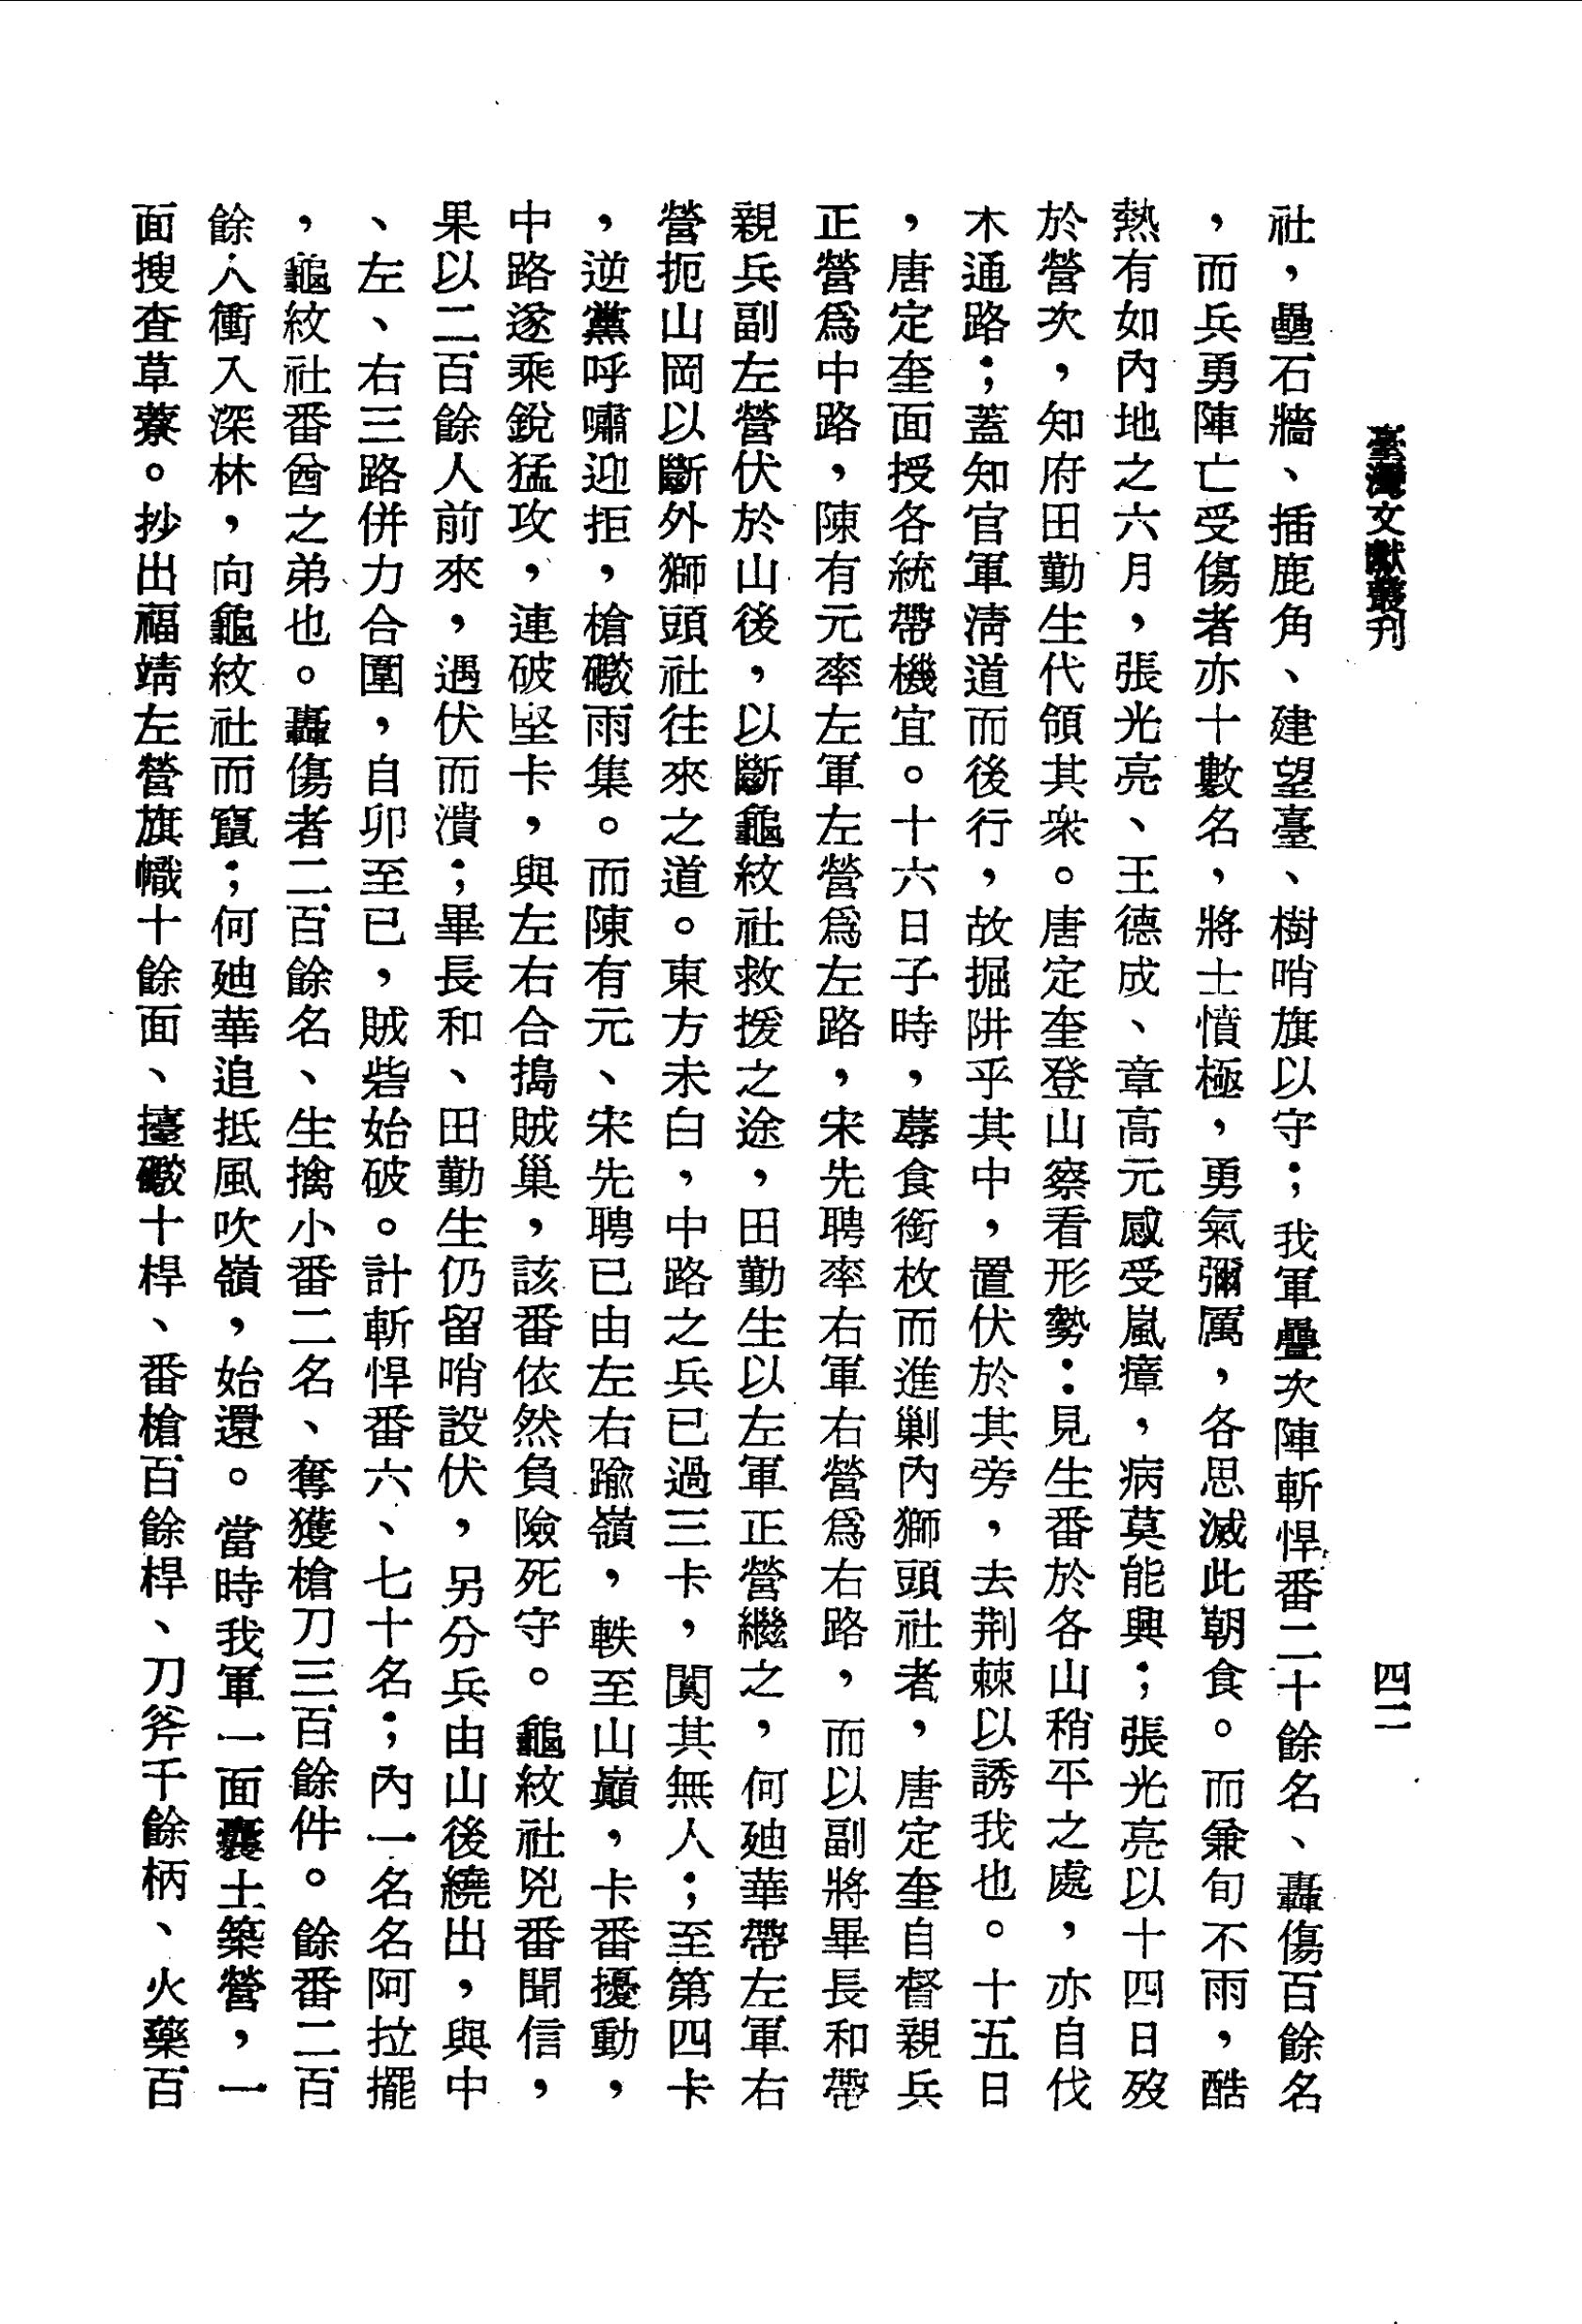 臺灣文獻叢刊
四二
社，壘石牆、插鹿角、建望臺、樹哨旗以守；我軍疊次陣斬悍番二十餘名、轟傷百餘名
，而兵勇陣亡受傷者亦十數名，將士憤極，勇氣彌厲，各思滅此朝食。而兼旬不雨，酷
熱有如內地之六月，張光亮、王德成、章高元感受嵐瘴，病莫能興；張光亮以十四日歿
於營次，知府田勤生代領其衆。唐定奎登山察看形勢：見生番於各山稍平之處，亦自伐
木通路；蓋知官軍淸道而後行，故掘阱乎其中，置伏於其旁，去荆棘以誘我也。十五日
，唐定奎面授各統帶機宜。十六日子時，蓐食銜枚而進剿內獅頭社者，唐定奎自督親兵
正營爲中路，陳有元率左軍左營爲左路，宋先聘率右軍右營爲右路，而以副將畢長和帶
親兵副左營伏於山後，以斷龜紋社救援之途，田勤生以左軍正營繼之，何廸華帶左軍右
營扼山岡以斷外獅頭社往來之道。東方未白，中路之兵已過三卡，闃其無人；至第四卡
，逆黨呼嘯迎拒，槍礮雨集。而陳有元、宋先聘已由左右踰嶺，軼至山巔，卡番擾動，
中路遂乘銳猛攻，連破堅卡，與左右合搗賊巢，該番依然負險死守。龜紋社兇番聞信，
果以二百餘人前來，遇伏而潰；畢長和、田勤生仍留哨設伏，另分兵由山後繞出，與中
、左、右三路併力合圍，自卯至已，賊砦始破。計斬悍番六、七十名；內一名名阿拉擺
，龜紋社番酋之弟也。轟傷者二百餘名、生擒小番二名、奪獲槍刀三百餘件。餘番二百
餘人衝入深林，向龜紋社而竄；何廸華追抵風吹嶺，始還。當時我軍一面囊土築營，一
面搜查草藔。抄出福靖左營旗幟十餘面、擡礮十桿、番槍百餘桿、刀斧千餘柄、火藥百